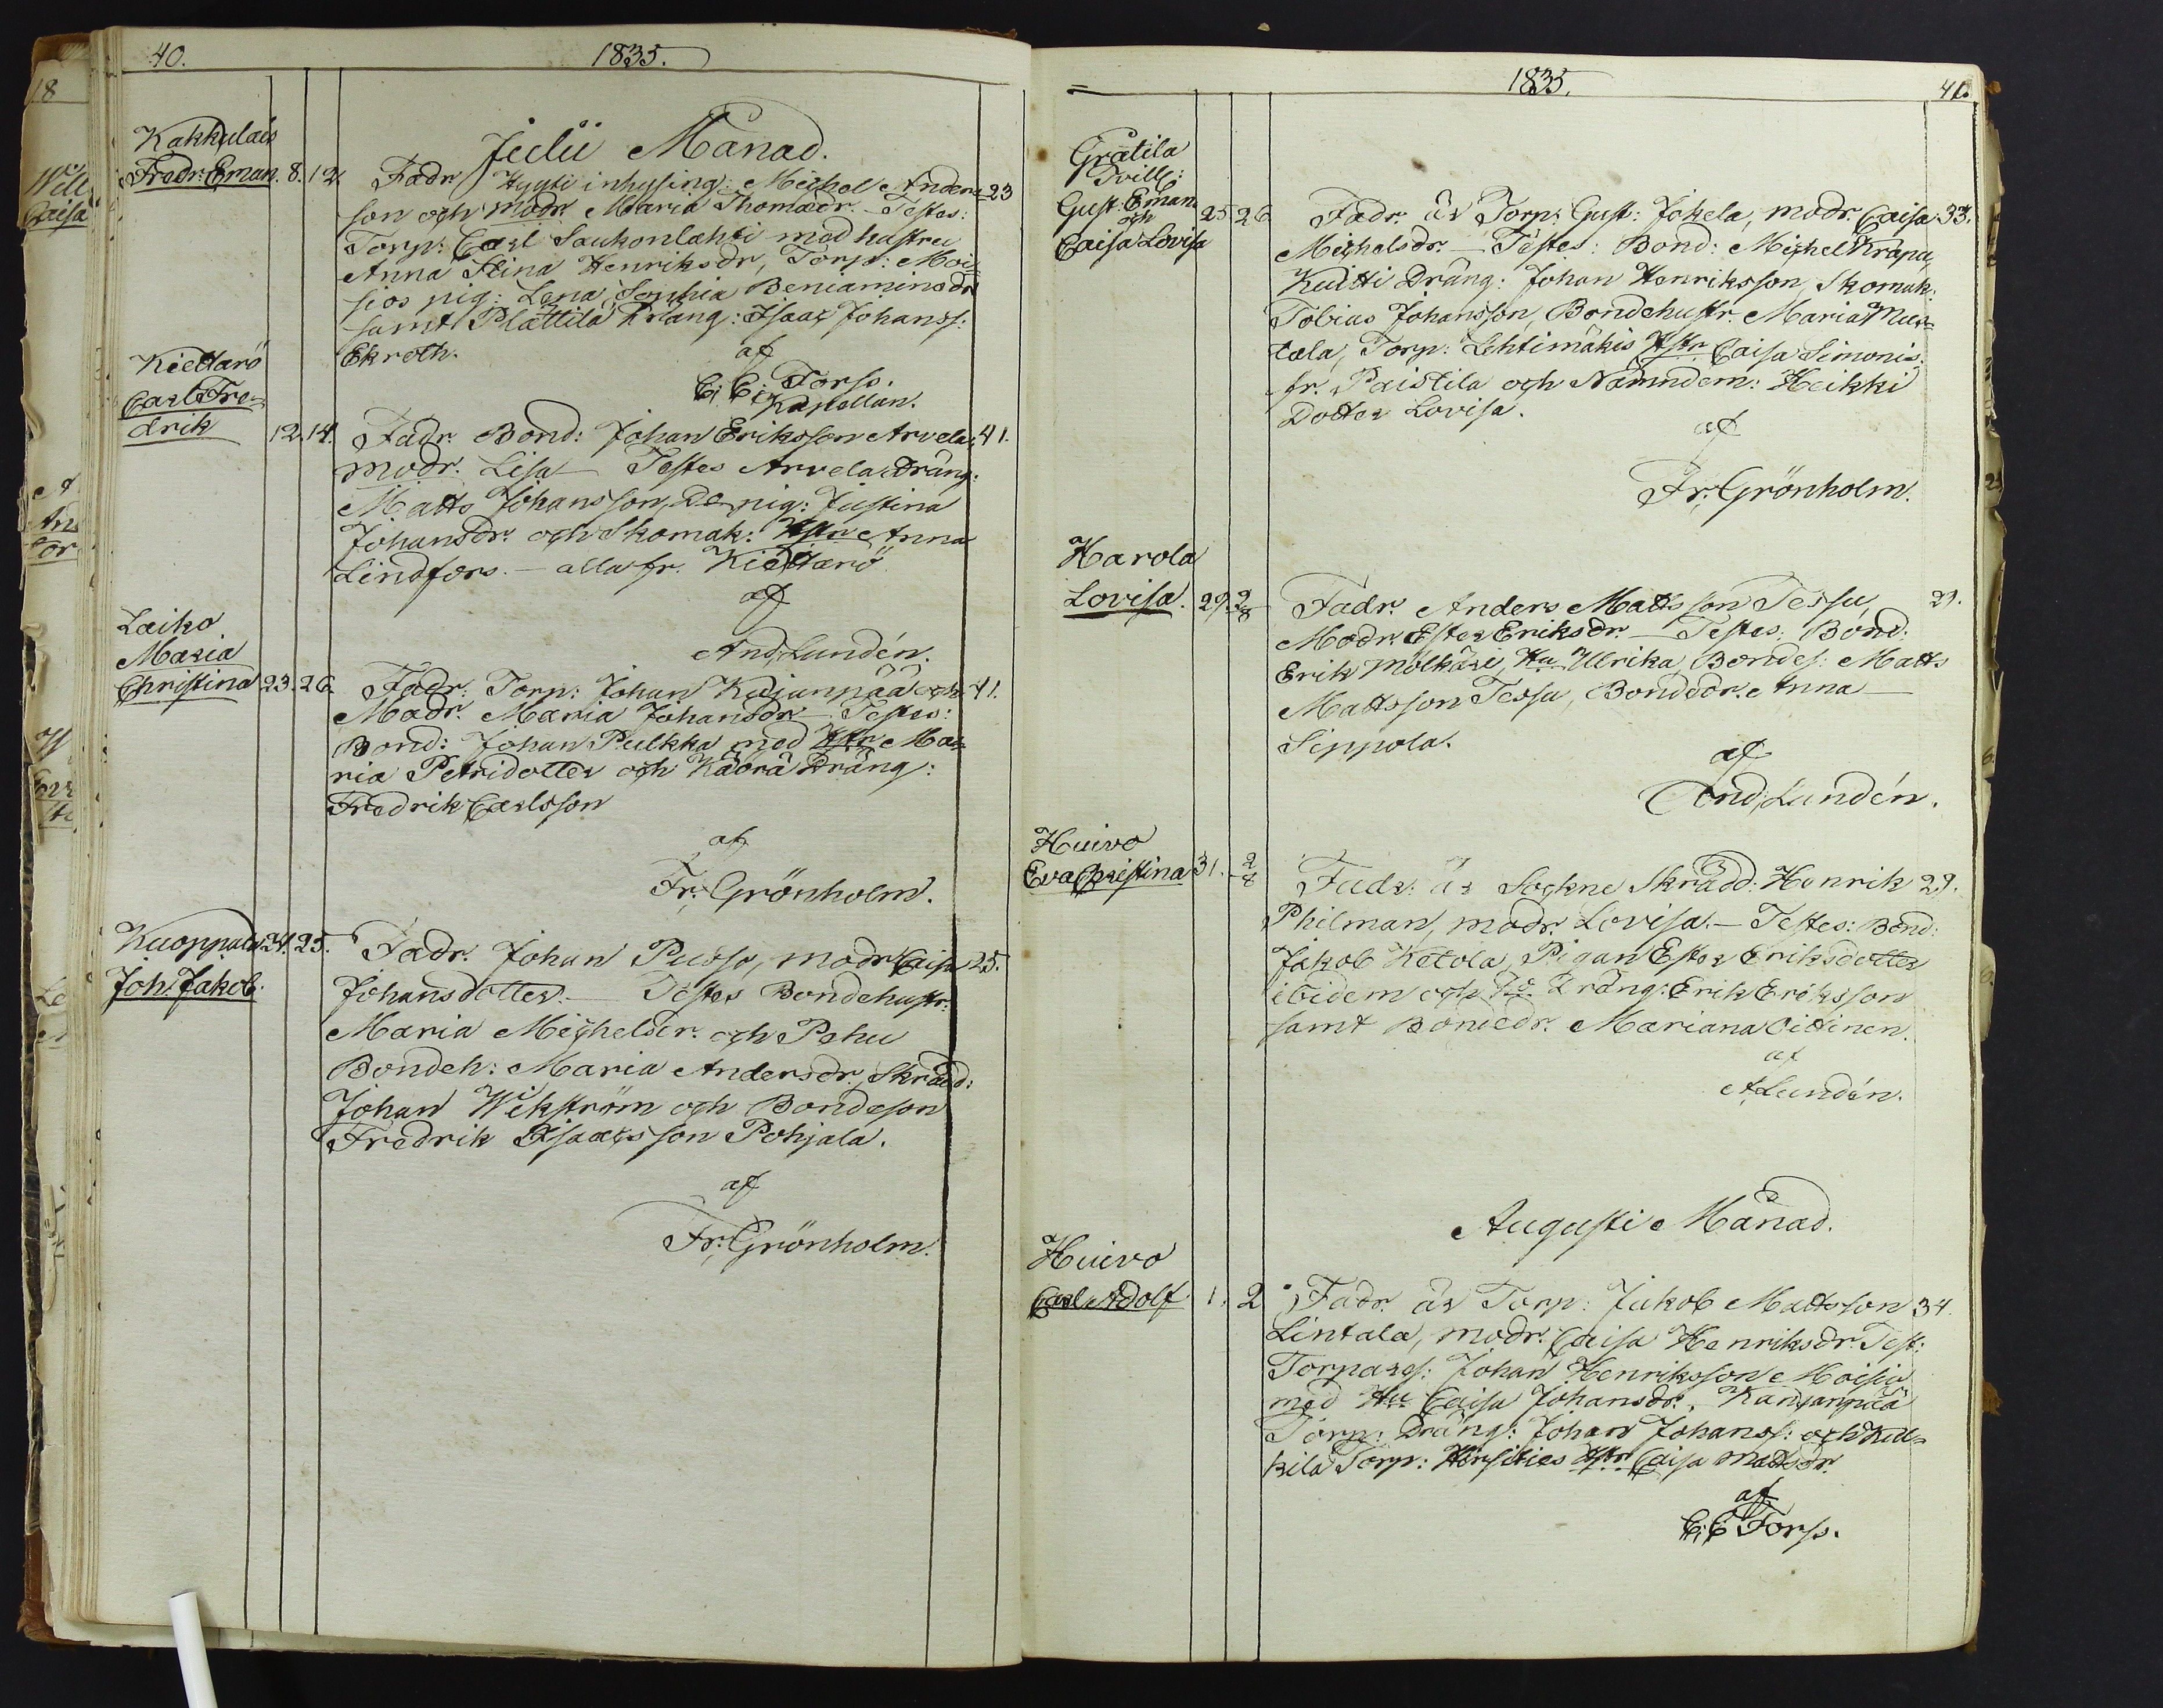 40.
1835.
Julii Månad.
Kakkulais
Fredr: Eman. 8. 12. Fadr. Hyyti inhysing: Michel Anders= 23
son och modr. Maria Thomædr. Testes:
Torp: Carl Saukonlahti med hustru
Anna Stina Henriksdr, Torp: Moi=
sios pig: Lena Sophia Beniaminsdr
samt Plättilä Dräng: Isaac Johanss:
Ekroth.
af
C. C. Forss.
Kapellan.
Kiettarö
Carl Fre=
drik 12. 14. Fadr. Bond: Johan Eriksson Arvela, 41.
modr. Lisa — Testes Arvela Dräng:
Matts Johansson, Do pig: Justina
Johansdr och Skomak: Hstr Anna
Lindfors. — alla fr. Kiettarö
af
And. Lundén.
Laiko
Maria
Christina 23. 26. Fadr: Torp: Johan Kujanpää och 41.
Modr. Maria Johansdr — Testes:
Bond: Johan Pulkka med Hstr Ma=
ria Petridotter och Käörä Dräng:
Fredrik Carlsson
af
Fr. Grönholm.
Kuoppala 24. 25. Fadr. Johan Pusso, modr Caisa 25.
Joh: Jakob. Johansdotter. — Testes Bondehustr:
Maria Michelsdr. och Pehu
Bondeh: Maria Andersdr, Skrädd:
Johan Wikström och Bondeson
Fredrik Isaacsson Pohjala.
af
Fr. Grönholm.
1835.
41.
Grätila
Tvill:
Gust: Eman
och
Caisa Lovisa 25 26 Fadr. är Torp: Gust: Jokela, modr. Caisa 33.
Michelsdr. — Testes: Bond: Michel Krapu,
Kuitti Dräng: Johan Henriksson, Skomak:
Tobias Johansson, Bondehustr. Maria Mus=
tala, Torp: Lehtimäkis Hstr Caisa Simonis:
fr. Paistila och Nämndem: Heikki
Dotter Lovisa.
af
Fr. Grönholm.
Harola
Lovisa. 29. 2/8 Fadr. Anders Mattsson Tessu, 21.
Modr. Ester Eriksdr. — Testes: Bond:
Erik Mölkäri, Hu Ulrika, Bondes: Matts
Mattsson Tessu, Bondedr. Anna —
Sippola.
af
And. Lundén.
Huivo
Eva Christina 31. 2/8 Fadr: är Sockne Skrädd: Henrik 29.
Philman, modr. Lovisa. — Testes: Bond:
Jakob Ketola, Pigan Ester Eriksdotter
ibidem och Do Dräng: Erik Eriksson
samt Bondedr. Mariana Oittinen.
af
A. Lundén.
Augusti Månad.
Huivo
Carl Adolf 1. 2. Fadr. är Torp: Jakob Mattsson 34.
Lintala, modr. Caisa Henriksdr. Test:
Torpares: Johan Henriksson Moisio
med Hu Caisa Johansdr., Kangarpää
Torp: Dräng: Johan Johanss: och Kul=
kila Torp: Hstr Caisa Mattsdr.
af
C. C. Forss.